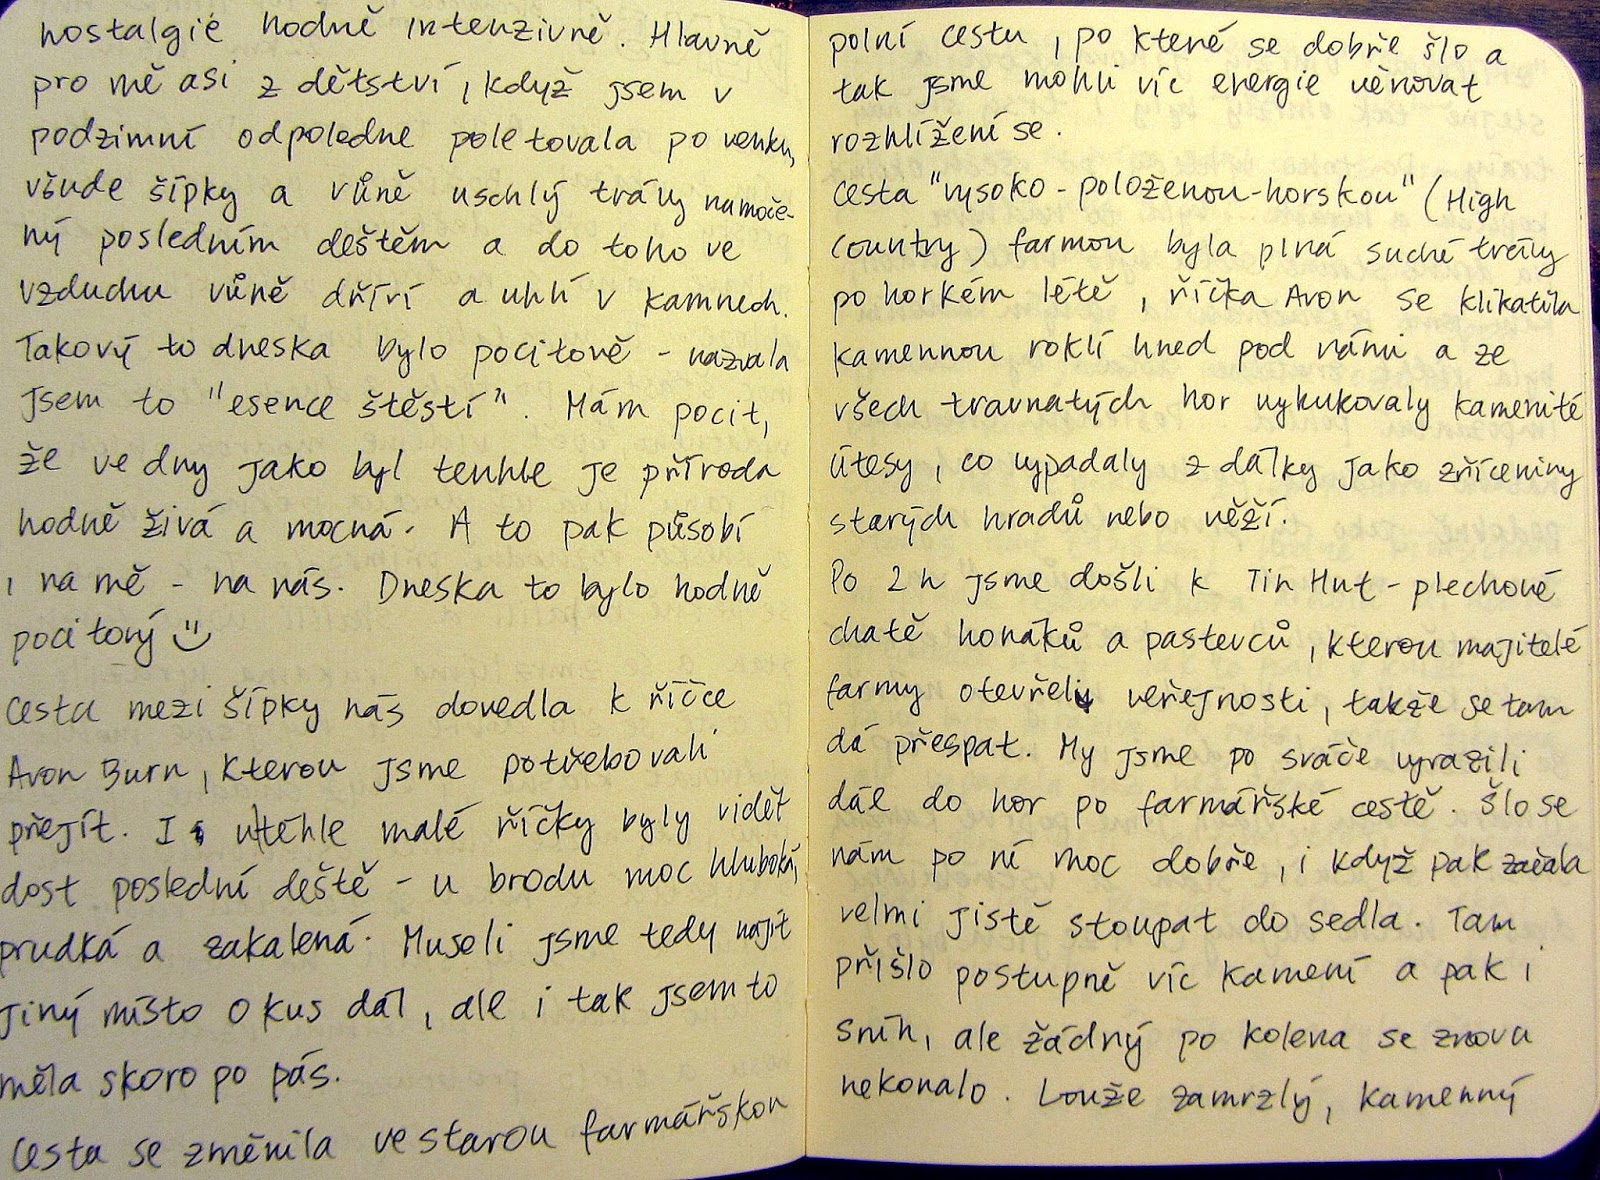 nostalgie hodně intenzivně. Hlavně
pro mě asi z dětství, když jsem v
podzimní odpoledne poletovala po venku,
všude šípky a vůně uschlý trávy namoče-
ný posledním deštěm a do toho ve
vzduchu vůně dříví a uhlí v kamnech.
Takový to dneska bylo pocitově - nazvala
jsem to "esence štěstí". Mám pocit,
že ve dny jako byl tenhle je příroda
hodně živá a mocná. A to pak působí
i na mě - na nás. Dneska to bylo hodně
pocitový
Cesta mezi šípky nás dovedla k říčce
Avon Burn, kterou jsme potřebovali
přejít. I u téhle malé říčky byly vidět
dost poslední deště - u brodu moc hluboká,
prudká a zakalená. Museli jsme tedy najít
jiný místo o kus dál, ale i tak jsem to
měla skoro po pás.
Cesta se změnila ve starou farmářskou
polní cestu, po které se dobře šlo a
tak jsme mohli víc energie věnovat
rozhlížení se.
Cesta "vysoko-položenou-horskou" (High
Country) farmou byla plná suché trávy
po horkém létě, říčka Avon se klikatila
kamennou roklí hned pod námi a ze
všech travnatých hor vykukovaly kamenité
útesy, co vypadaly z dálky jako zříceniny
starých hradů nebo věží.
Po 2h jsme došli k Tin Hut - plechové
chatě honáků a pastevců, kterou majitelé
farmy otevřeli veřejnosti, takže se tam
dá přespat. My jsme po sváče vyrazili
dál do hor po farmářské cestě. Šlo se
nám po ní moc dobře, i když pak začala
velmi jistě stoupat do sedla. Tam
přišlo postupně víc kamení a pak i
sníh, ale žádný po kolena se znovu
nekonalo. Louže zamrzlý, kamenný